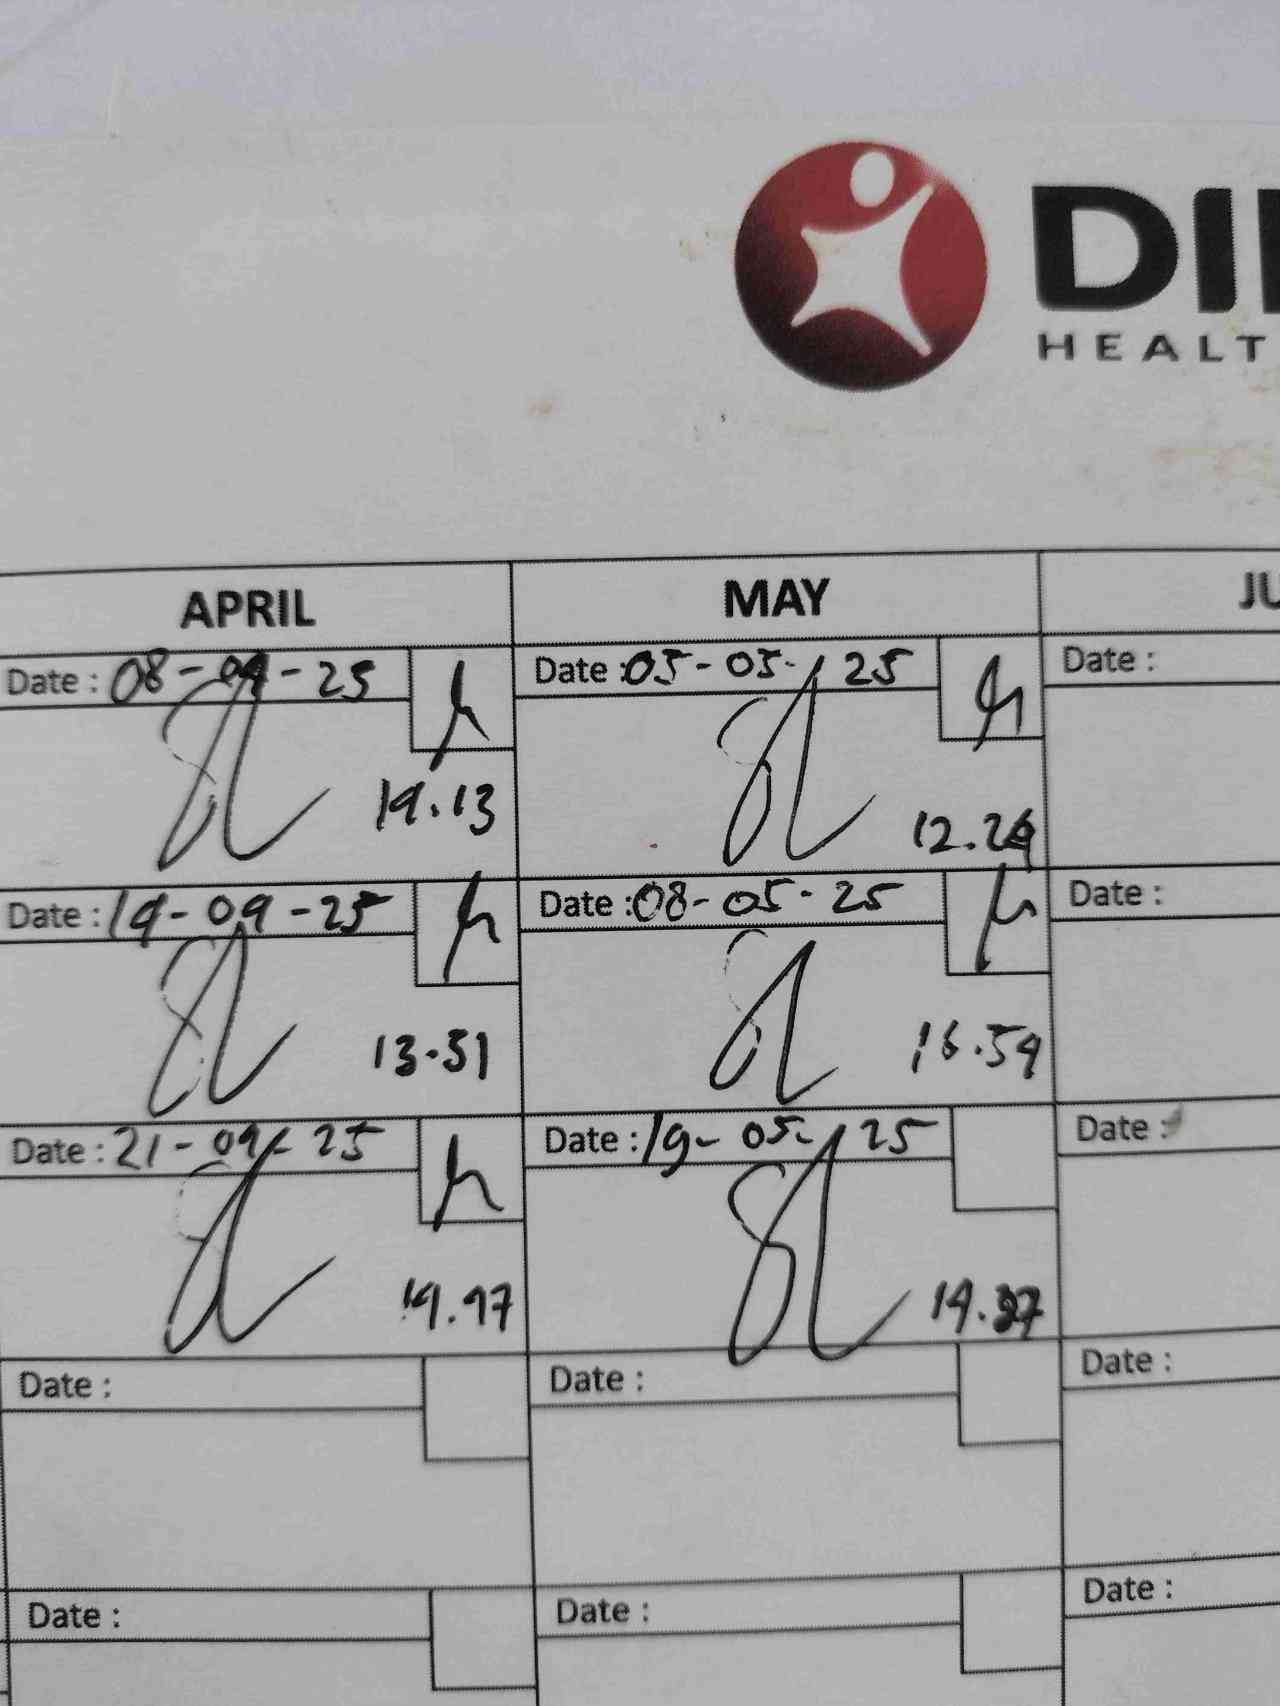 DI
HEALT
APRIL MAY JU
Date : 08-04-25 Date : 05-05-25 Date :
14.13 12.24
Date : 14-04-25 Date : 08-05-25 Date :
13.51 16.54
Date : 21-04-25 Date : 19-05-25 Date :
14.47 14.37
Date : Date : Date :
Date : Date : Date :